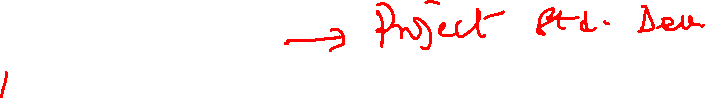 → Project Std. Dev